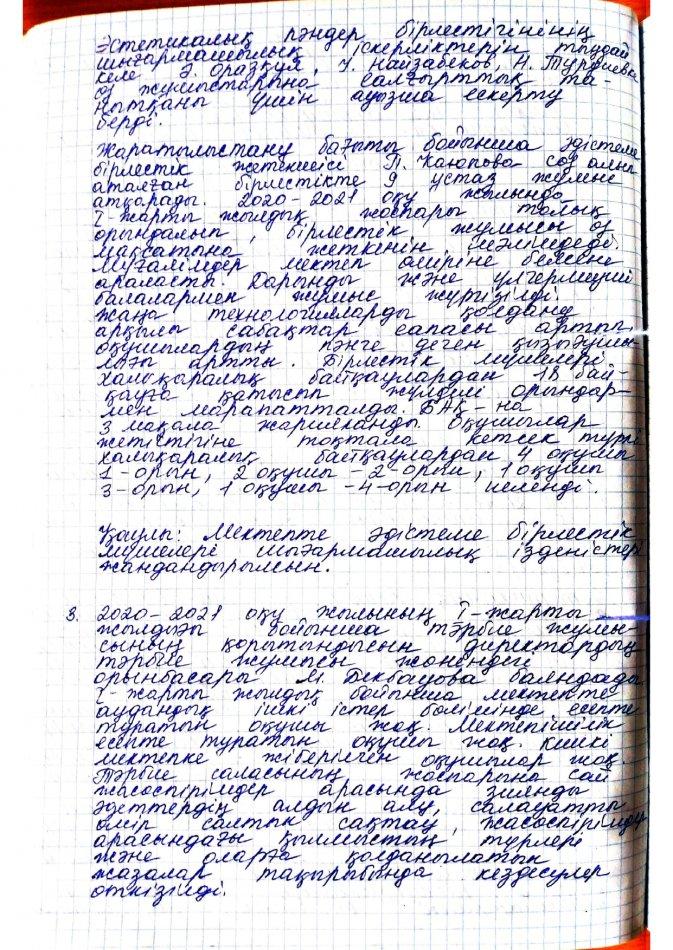 Эстетикалық пәндер бірлестігінінің
шығармашылық іскерліктерін тыңдай
келе Ә. Оразкүл, У. Найзабеков, Н. Турдиева
өз жұмыстарына салғырттық та-
нытқаны үшін ауызша ескерту
берді.
Жаратылыстану бағыты бойынша әдістеме
бірлестік жетекшісі П. Каюпова сөз алып
аталған бірлестікте 9 ұстаз жұмыс
атқарады. 2020-2021 оқу жылында
I-жарты жылдық жоспары толық
орындалып, бірлестік жұмысы өз
мақсатына жеткенін мәлімдеді.
Мұғалімдер мектеп өміріне белсене
араласты. Дарынды және үлгермеуші
балалармен жұмыс жүргізілді
жаңа технологияларды қолдану
арқылы сабақтар сапасы артып,
оқушылардың пәнге деген қызығушы
лығы артты. Бірлестік мүшелері
халықаралық байқаулардан 18 бай-
қауға қатысып жүлделі орындар-
мен марапатталды. БАҚ-на
3 мақала жарияланды. Оқушылар
жетістігіне тоқтала кетсек түрлі
халықаралық байқаулардан 4 оқушы
1-орын, 2 оқушы -2-орын, 1 оқушы
3-орын, 1 оқушы -4-орын иеленді.
Қаулы: Мектепте әдістеме бірлестік
мүшелері шығармашылық ізденістері
жандандырылсын.
3. 2020-2021 оқу жылының I-жарты
жылдығы бойынша тәрбие жұмы-
сының қорытындысын директардың
тәрбие жұмысы жөніндегі
орынбасары М. Бекбауова баяндады
I-жарты жылдық бойынша мектепте
аудандық ішкі істер бөлімінде есепте
тұратын оқушы жоқ. Мектепішілік
есепте тұратын оқушы жоқ. Кешкі
мектепке жіберілген оқушылар жоқ.
Тәрбие саласының жоспарына сай
жасөспірімдер арасында зиянды
әдеттердің алдын алу, салауатты
өмір салтын сақтау, жасөспірімдер
арасындағы қылмыстың түрлері
және оларға қолданылатын
жазалар тақырыбында кездесулер
өткізілді.